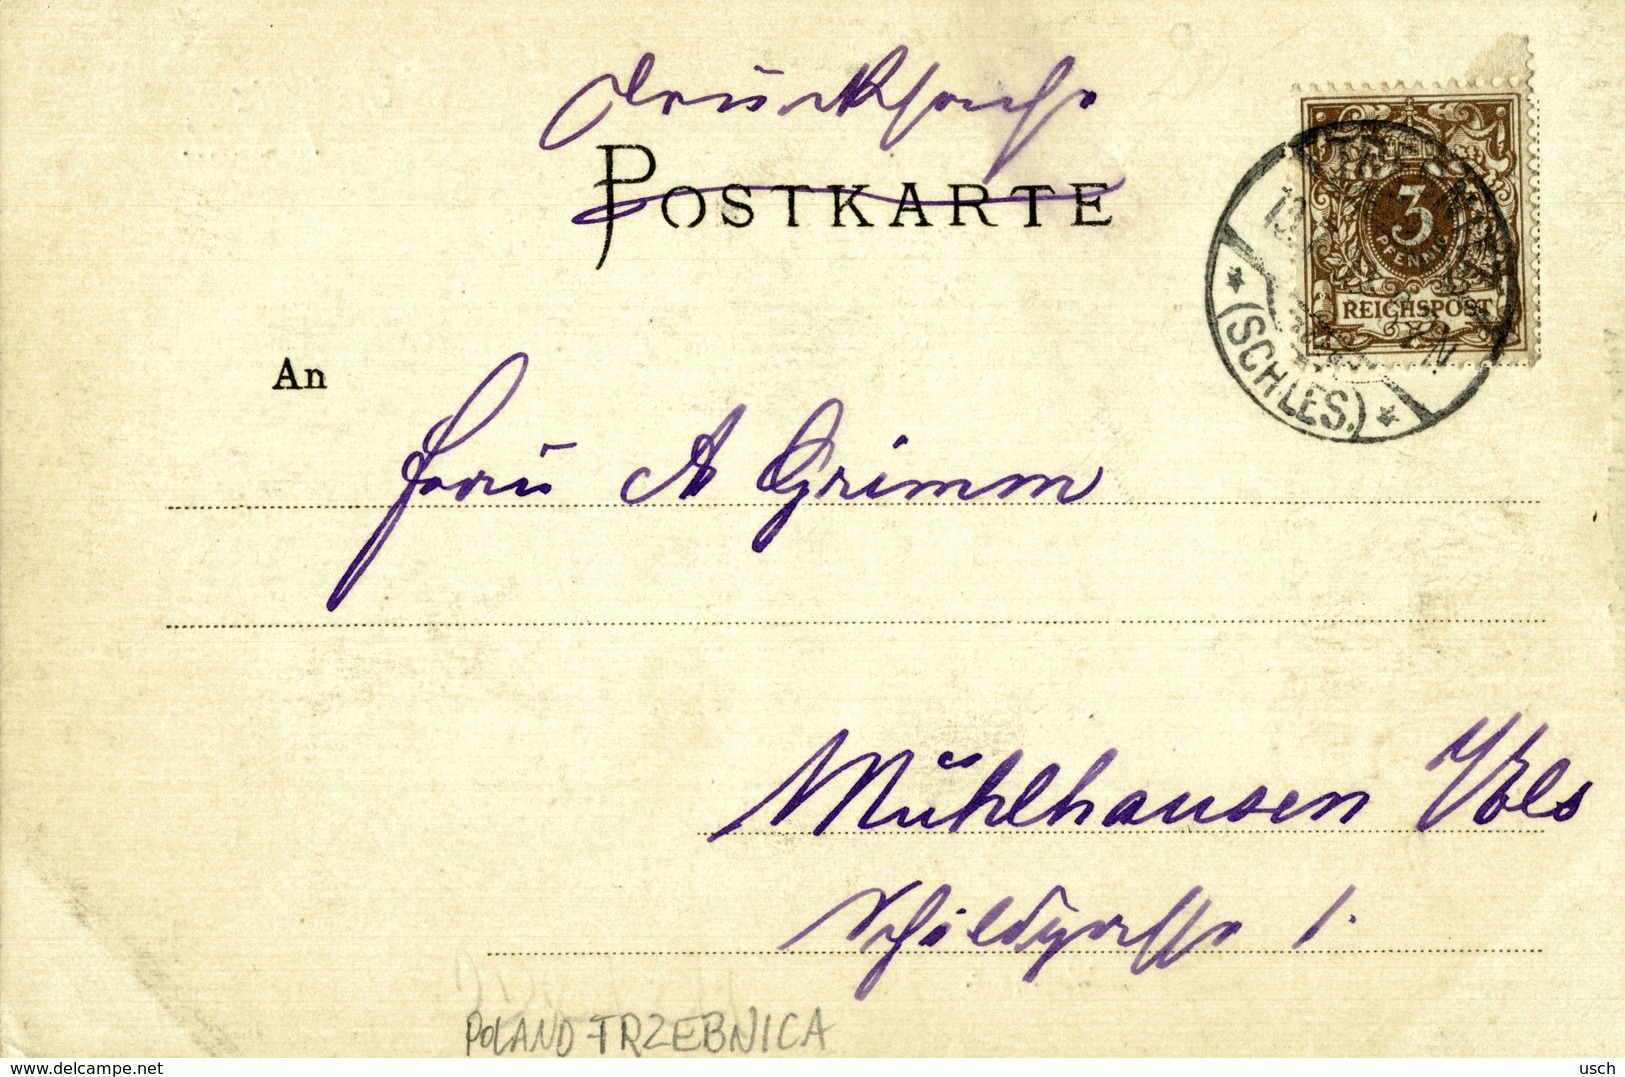 Drucksache
POSTKARTE
3
PFENNIG
REICHSPOST
(SCHLES.)
An
Frau A Grimm
Mühlhausen i/Els
Schildgasse 1.
POLAND TRZEBNICA
www.delcampe.net
usch